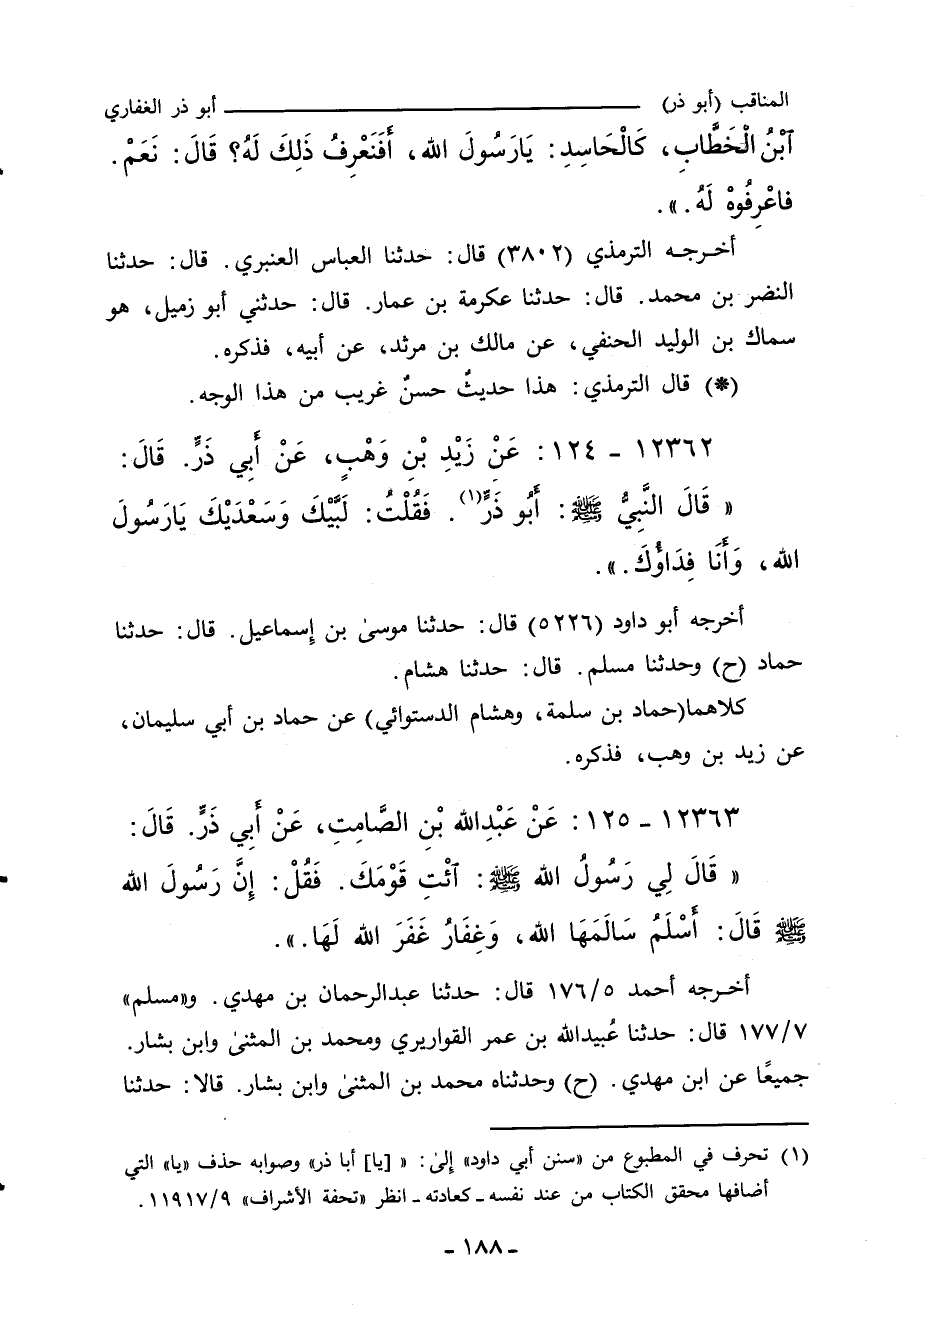 المناقب (أبو ذر) ــــــــــــــــــ أبو ذر الغفاري
ٱبْنُ الْخَطَّابِ، كَالْحَاسِدِ: يَارَسُولَ الله، أَفَنَعْرِفُ ذَلِكَ لَهُ؟ قَالَ: نَعَمْ.
فاعْرِفُوهْ لَهُ.».
أخرجه الترمذي (٣٨٠٢) قال: حدثنا العباس العنبري. قال: حدثنا
النضر بن محمد. قال: حدثنا عكرمة بن عمار. قال: حدثني أبو زميل، هو
سماك بن الوليد الحنفي، عن مالك بن مرثد، عن أبيه، فذكره.
(*) قال الترمذي: هذا حديثٌ حسنٌ غريب من هذا الوجه.
١٢٣٦٢ - ١٢٤: عَنْ زَيْدِ بْنِ وَهْبٍ، عَنْ أَبِي ذَرٍّ. قَالَ:
« قَالَ النَّبِيُّ ﷺ: أَبُو ذَرٍّ(١). فَقُلْتُ: لَبَّيْكَ وَسَعْدَيْكَ يَارَسُولَ
الله، وَأَنَا فِدَاؤُكَ.».
أخرجه أبو داود (٥٢٢٦) قال: حدثنا موسىٰ بن إسماعيل. قال: حدثنا
حماد (ح) وحدثنا مسلم. قال: حدثنا هشام.
كلاهما(حماد بن سلمة، وهشام الدستوائي) عن حماد بن أبي سليمان،
عن زيد بن وهب، فذكره.
١٢٣٦٣ - ١٢٥: عَنْ عَبْدِالله بْنِ الصَّامِتِ، عَنْ أَبِي ذَرٍّ. قَالَ:
« قَالَ لِي رَسُولُ الله ﷺ: ٱئْتِ قَوْمَكَ. فَقُلْ: إِنَّ رَسُولَ الله
ﷺ قَالَ: أَسْلَمُ سَالَمَهَا الله، وَغِفَارُ غَفَرَ الله لَهَا.».
أخرجه أحمد ١٧٦/٥ قال: حدثنا عبدالرحمان بن مهدي. و«مسلم»
١٧٧/٧ قال: حدثنا عُبيدالله بن عمر القواريري ومحمد بن المثنىٰ وابن بشار.
جميعًا عن ابن مهدي. (ح) وحدثناه محمد بن المثنىٰ وابن بشار. قالا: حدثنا
(١) تحرف في المطبوع من «سنن أبي داود» إلىٰ: « [يا] أبا ذر» وصوابه حذف «يا» التي
أضافها محقق الكتاب من عند نفسه - كعادته - انظر «تحفة الأشراف» ١١٩١٧/٩.
- ١٨٨ -